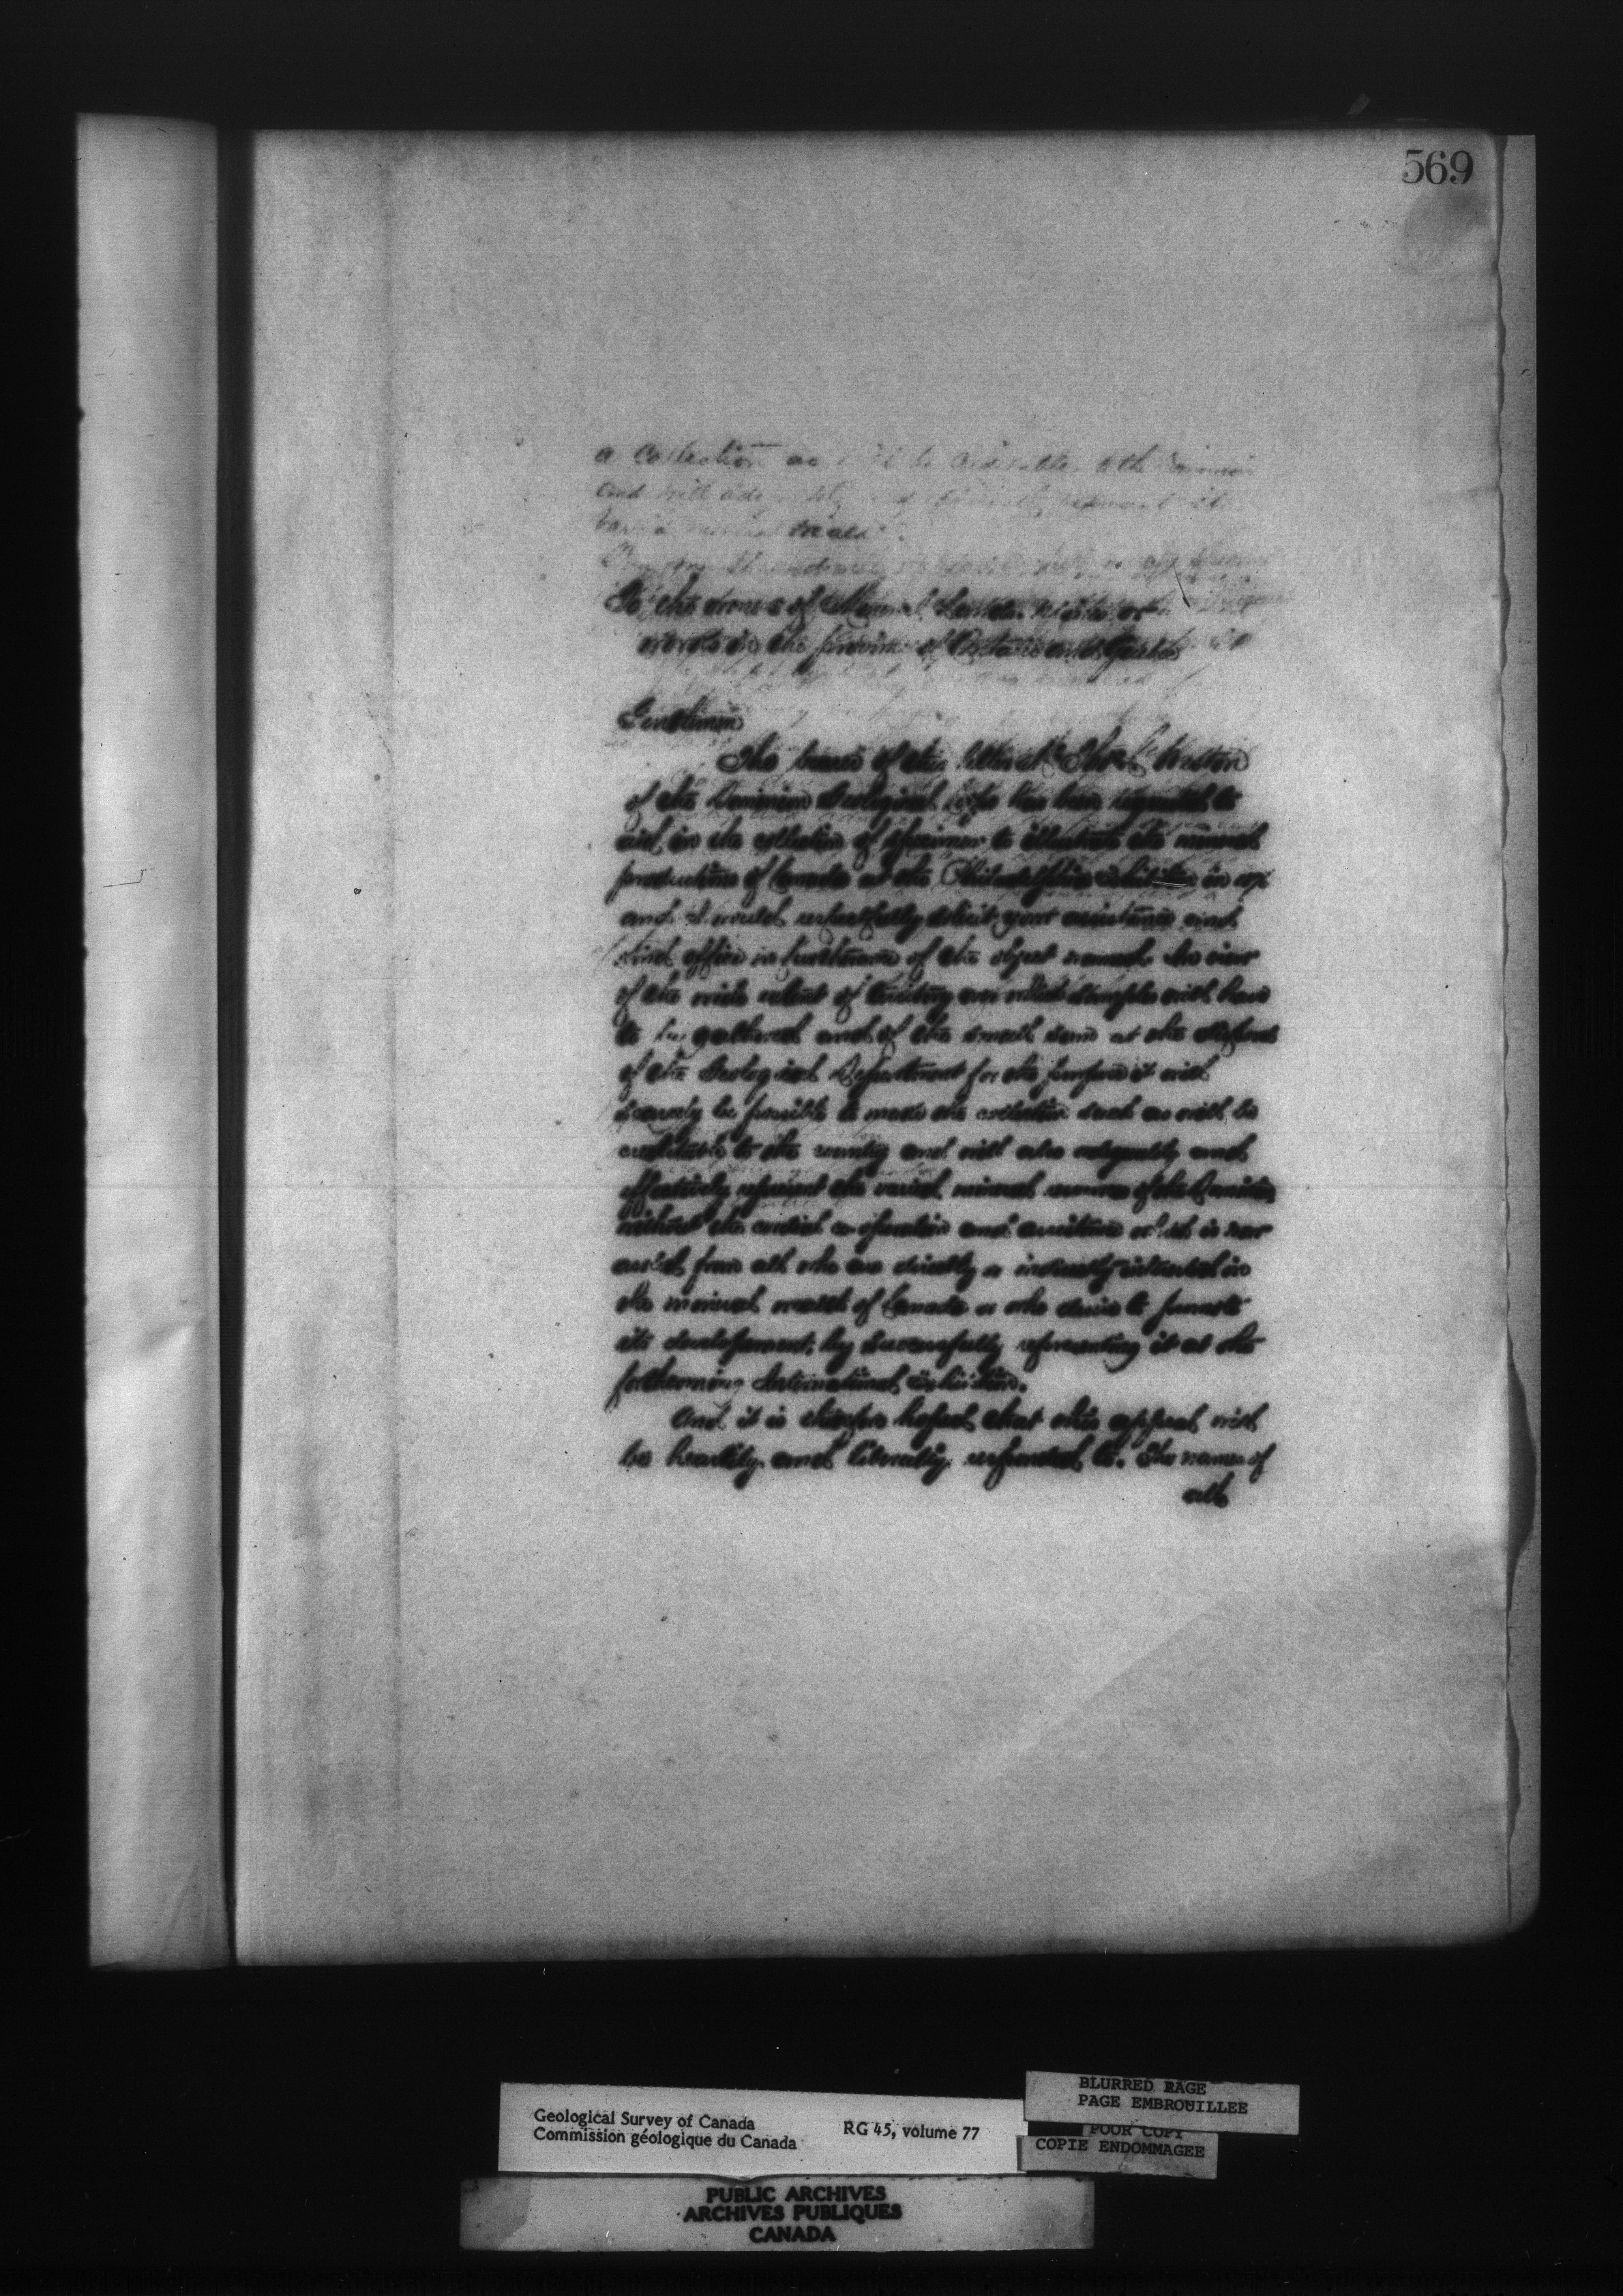 569
a collection as will be creditable to the Dominion
and will
mineral wealth.
To the owners of Mineral Lands, Mines or
works in the province of Ontario and Quebec
Gentlemen
The bearer of this letter Mr Thos C Weston
of the Dominion Geological Corps has been requested to
aid in the collection of specimens to illustrate the mineral
productions of Canada at the Philadelphia exhibition in 1876
and I would respectfully solicit your assistance and
kind office in furtherance of the object named. In view
of the wide extent of territory over which samples will have
to be gathered and of the small sum at the disposal
of the Geological Department for the purpose it will
scarcely be possible to make the collection such as will be
creditable to the country and will also adequately and
effectively represent the varied mineral resources of the Dominion
without the cordial co-operation and assistance which is now
asked from all who are directly or indirectly interested in
the mineral wealth of Canada or who desire to promote
its development, by successfully representing it at the
forthcoming International exhibition.
And it is therefore hoped that this appeal will
be heartily and liberally responded to. The names of
all
Geological Survey of Canada
Commission géologique du Canada
RG 45, volume 77
BLURRED PAGE
PAGE EMBROUILLEE
POOR COPY
COPIE ENDOMMAGEE
PUBLIC ARCHIVES
ARCHIVES PUBLIQUES
CANADA